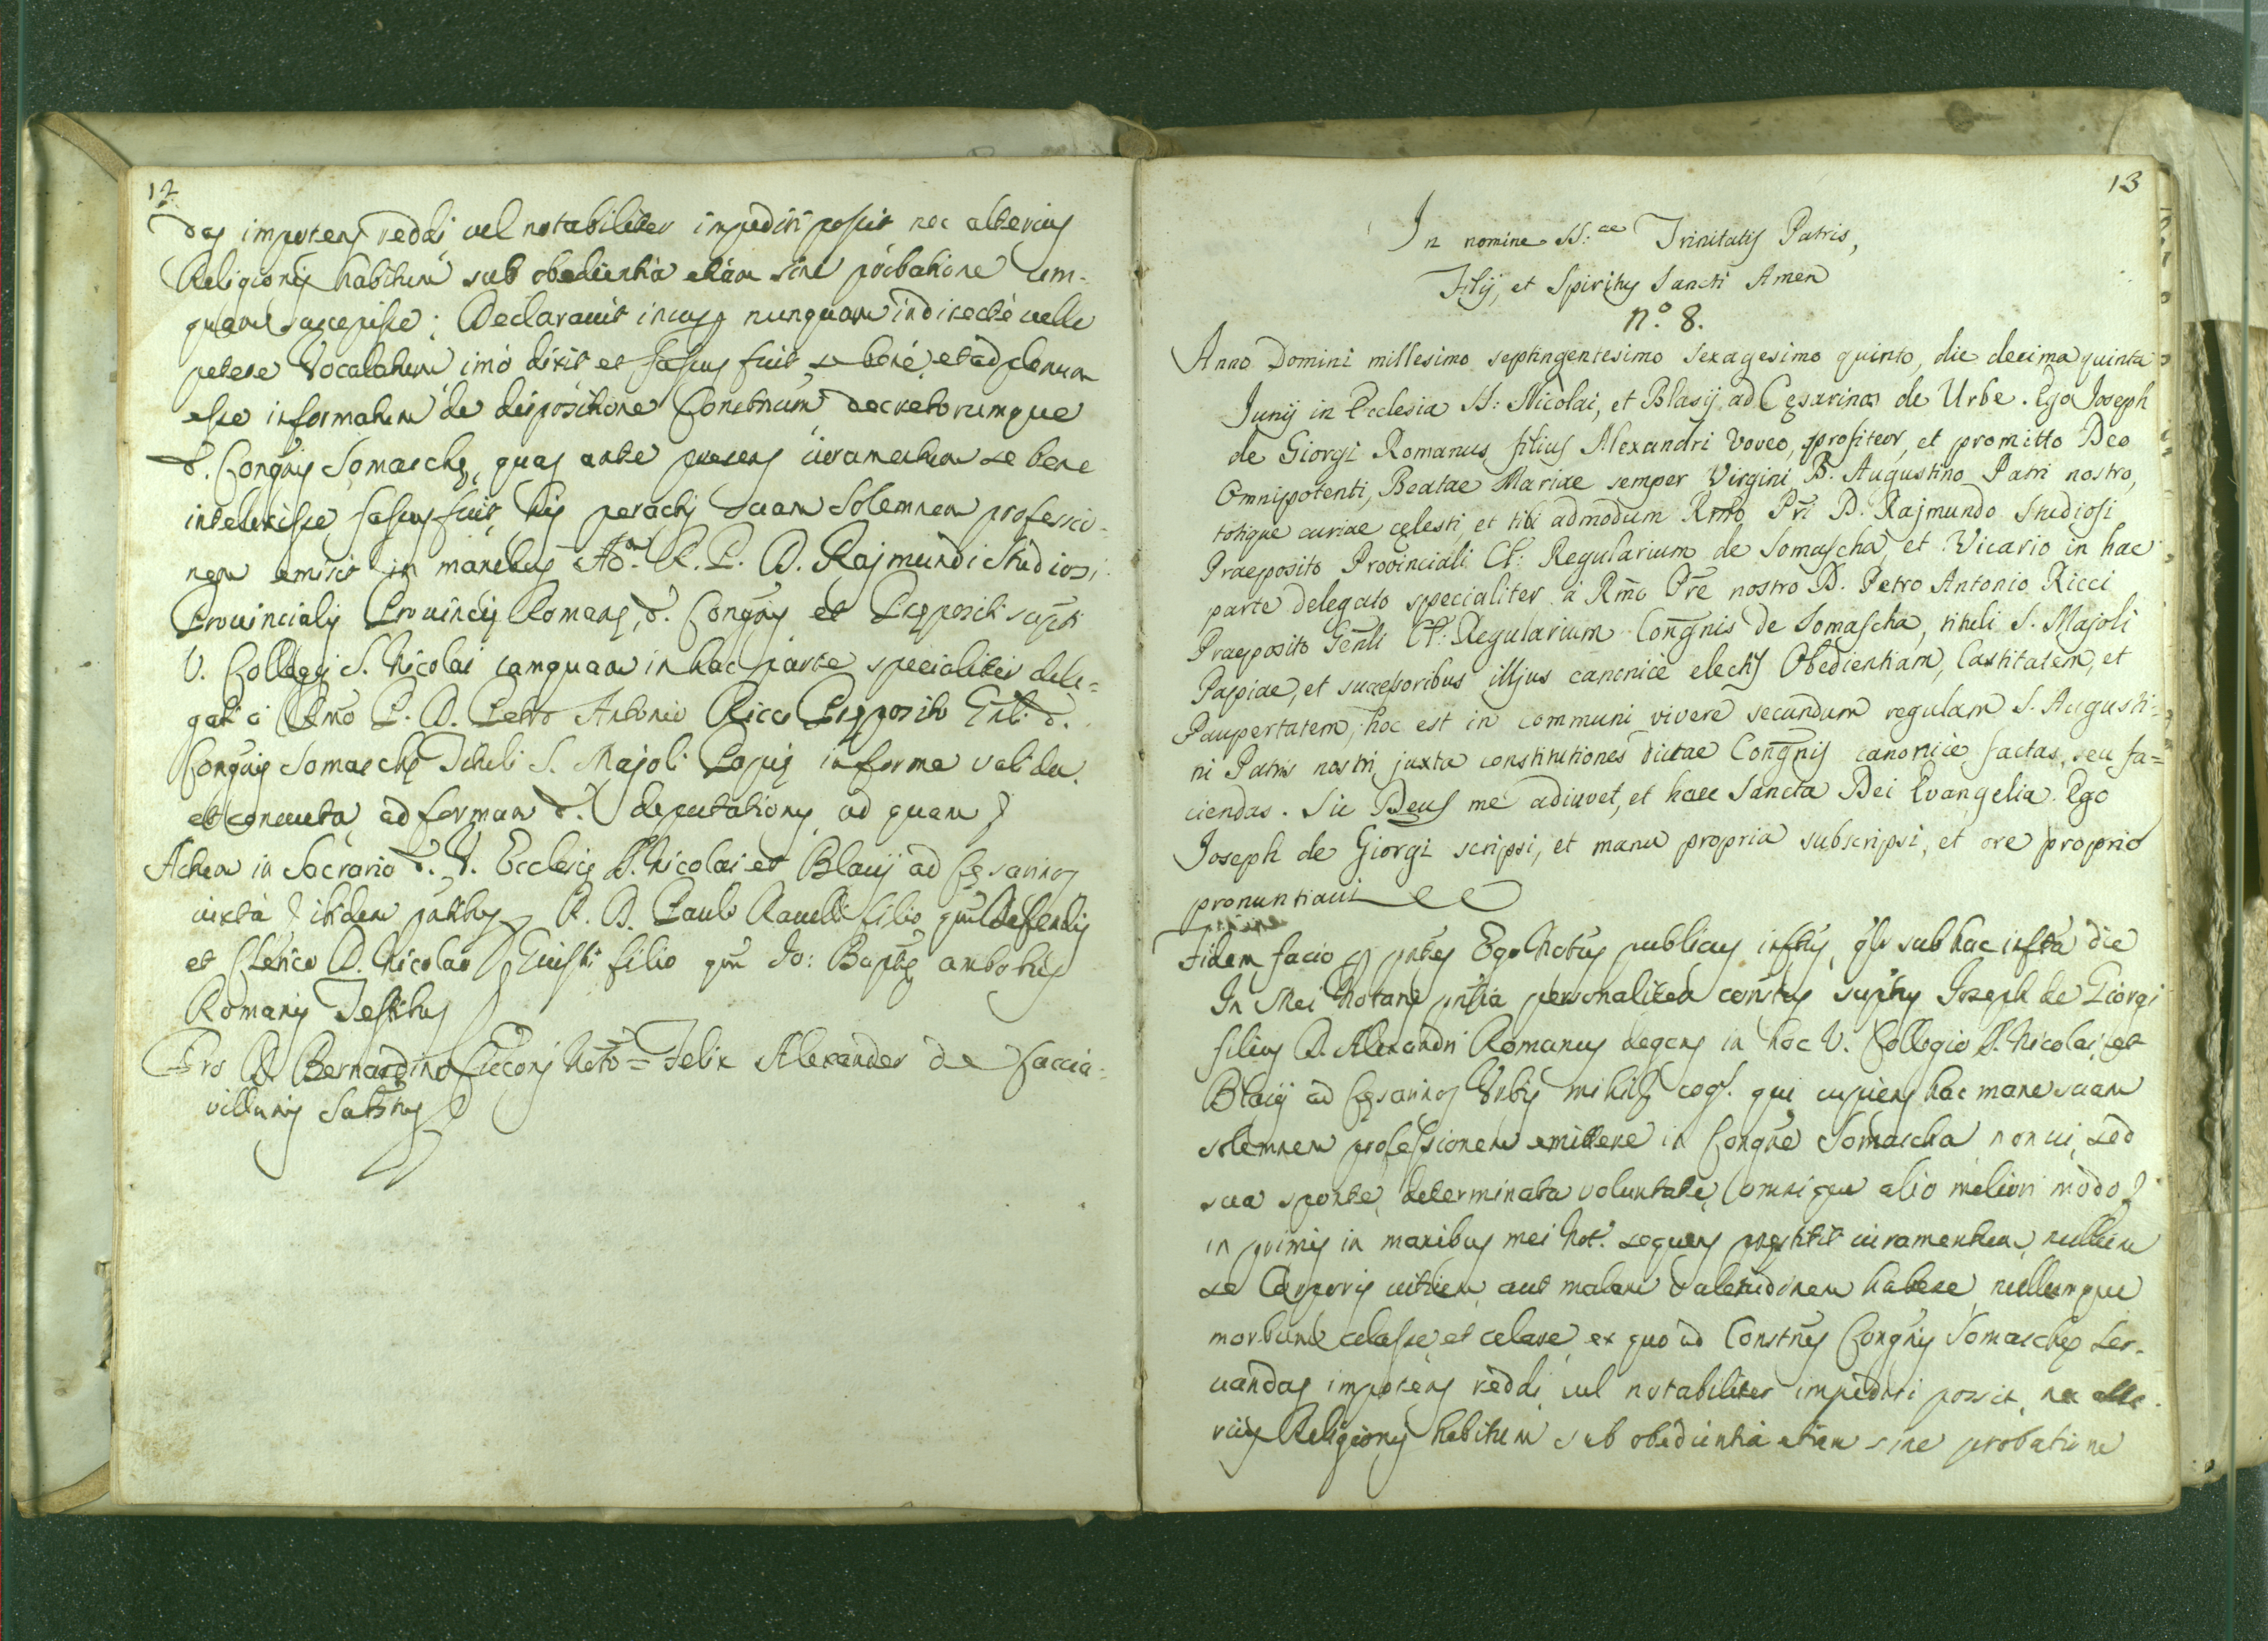 12
das impotens reddi vel notabiliter impediri possit nec alterius
Religionis habitum sub obedientia etiam sine probatione um-
quam suscepisse; Declaravit insuper nunquam indirectè velle
petere Vocalatum imò dixit et fassus fuit se benè, et ad plenum
esse informatum de dispositione Constnum decretorumque
d. Congnis Somaschę, quas ante presens iuramentum se bene
intellexisse fassus fuit, his peractis suam Solemnem professio-
nem emisit in manibus Ad. R. P. D. Rajmundi Studiosi
Provincialis Provincię Romanę, d. Congnis et Prępositi supti
V. Collegij S. Nicolai tamquam in hac parte specialiter dele=
gati à Rmo P. D. Petro Antonio Ricci Pręposito Gnli d.
Congnis Somaschę Tituli S. Majoli Papię in forma valida
et consueta, ad formam d. deputationis, ad quam
Actum in Sacrario d. V. Ecclesię S. Nicolai et Blasij ad Cęsarinos
iuxta ibidem pntibus R. D. Paulo Ravelli filio qm Defendis
et Clerico D. Nicolao filio qm Jo: Baptę ambobus
Romanis Testibus
Pro D. Bernardino Cicconi Noto = Felix Alexander de Caccia-
villanis
13
In nomine SS:ae Trinitatis Patris,
Filij, et Spiritus Sancti Amen
n.o 8.
Anno Domini millesimo septingentesimo sexagesimo quinto, die decima quinta
Junij in Ecclesia SS: Nicolai, et Blasij ad Cęsarinos de Urbe. Ego Joseph
de Giorgi Romanus filius Alexandri voveo, profiteor, et promitto Deo
Omnipotenti, Beatae Mariae semper Virgini, B. Augustino Patri nostro,
totique curiae cęlesti, et tibi admodum Rmo Pri D. Rajmundo Studiosi
Praeposito Provinciali Cl: Regularium de Somascha, et Vicario in hac
parte delegato specialiter à Rmo Pre nostro D. Petro Antonio Ricci
Praeposito Genli Cl: Regularium Congnis de Somascha, tituli S. Majoli
Papiae, et sucessoribus illius canonicè electis Obedientiam, Castitatem, et
Paupertatem, hoc est in communi vivere secundum regulam S. Augusti=
ni Patris nostri, juxta constitutiones dictae Congnis canonicè factas, seu fa=
ciendas. Sic Deus me adiuvet, et haec Sancta Dei Evangelia. Ego
Joseph de Giorgi scripsi, et manu propria subscripsi, et ore proprio
pronuntiavi
Fidem facio pntes Ego Notus publicus inftus, qlr sub hac infta die
In Mei Notarij pntia personaliter constus suptus Joseph de Giorgi
filius D. Alexandri Romanus degens in hoc V. Collegio S. Nicolai, et
Blasij ad Cęsarinos Urbis mihi cog. qui cupiens hac mane suam
solemnem professionem emittere in Congne Somascha non vi, sed
sua sponte, determinata voluntate, omnique alio meliori modo
in primis in manibus mei Not. sequens pręstitit iuramentum, nullum
se Corporis vitium, aut malam valetudinem habere, nullumque
morbum celasse, et celare, ex quo ad Constnes Congnis Somaschę ser-
vandas impotens reddi, vel notabiliter impediri possit, nec alte-
rius Religionis habitum sub obedientia etiam sine probatione